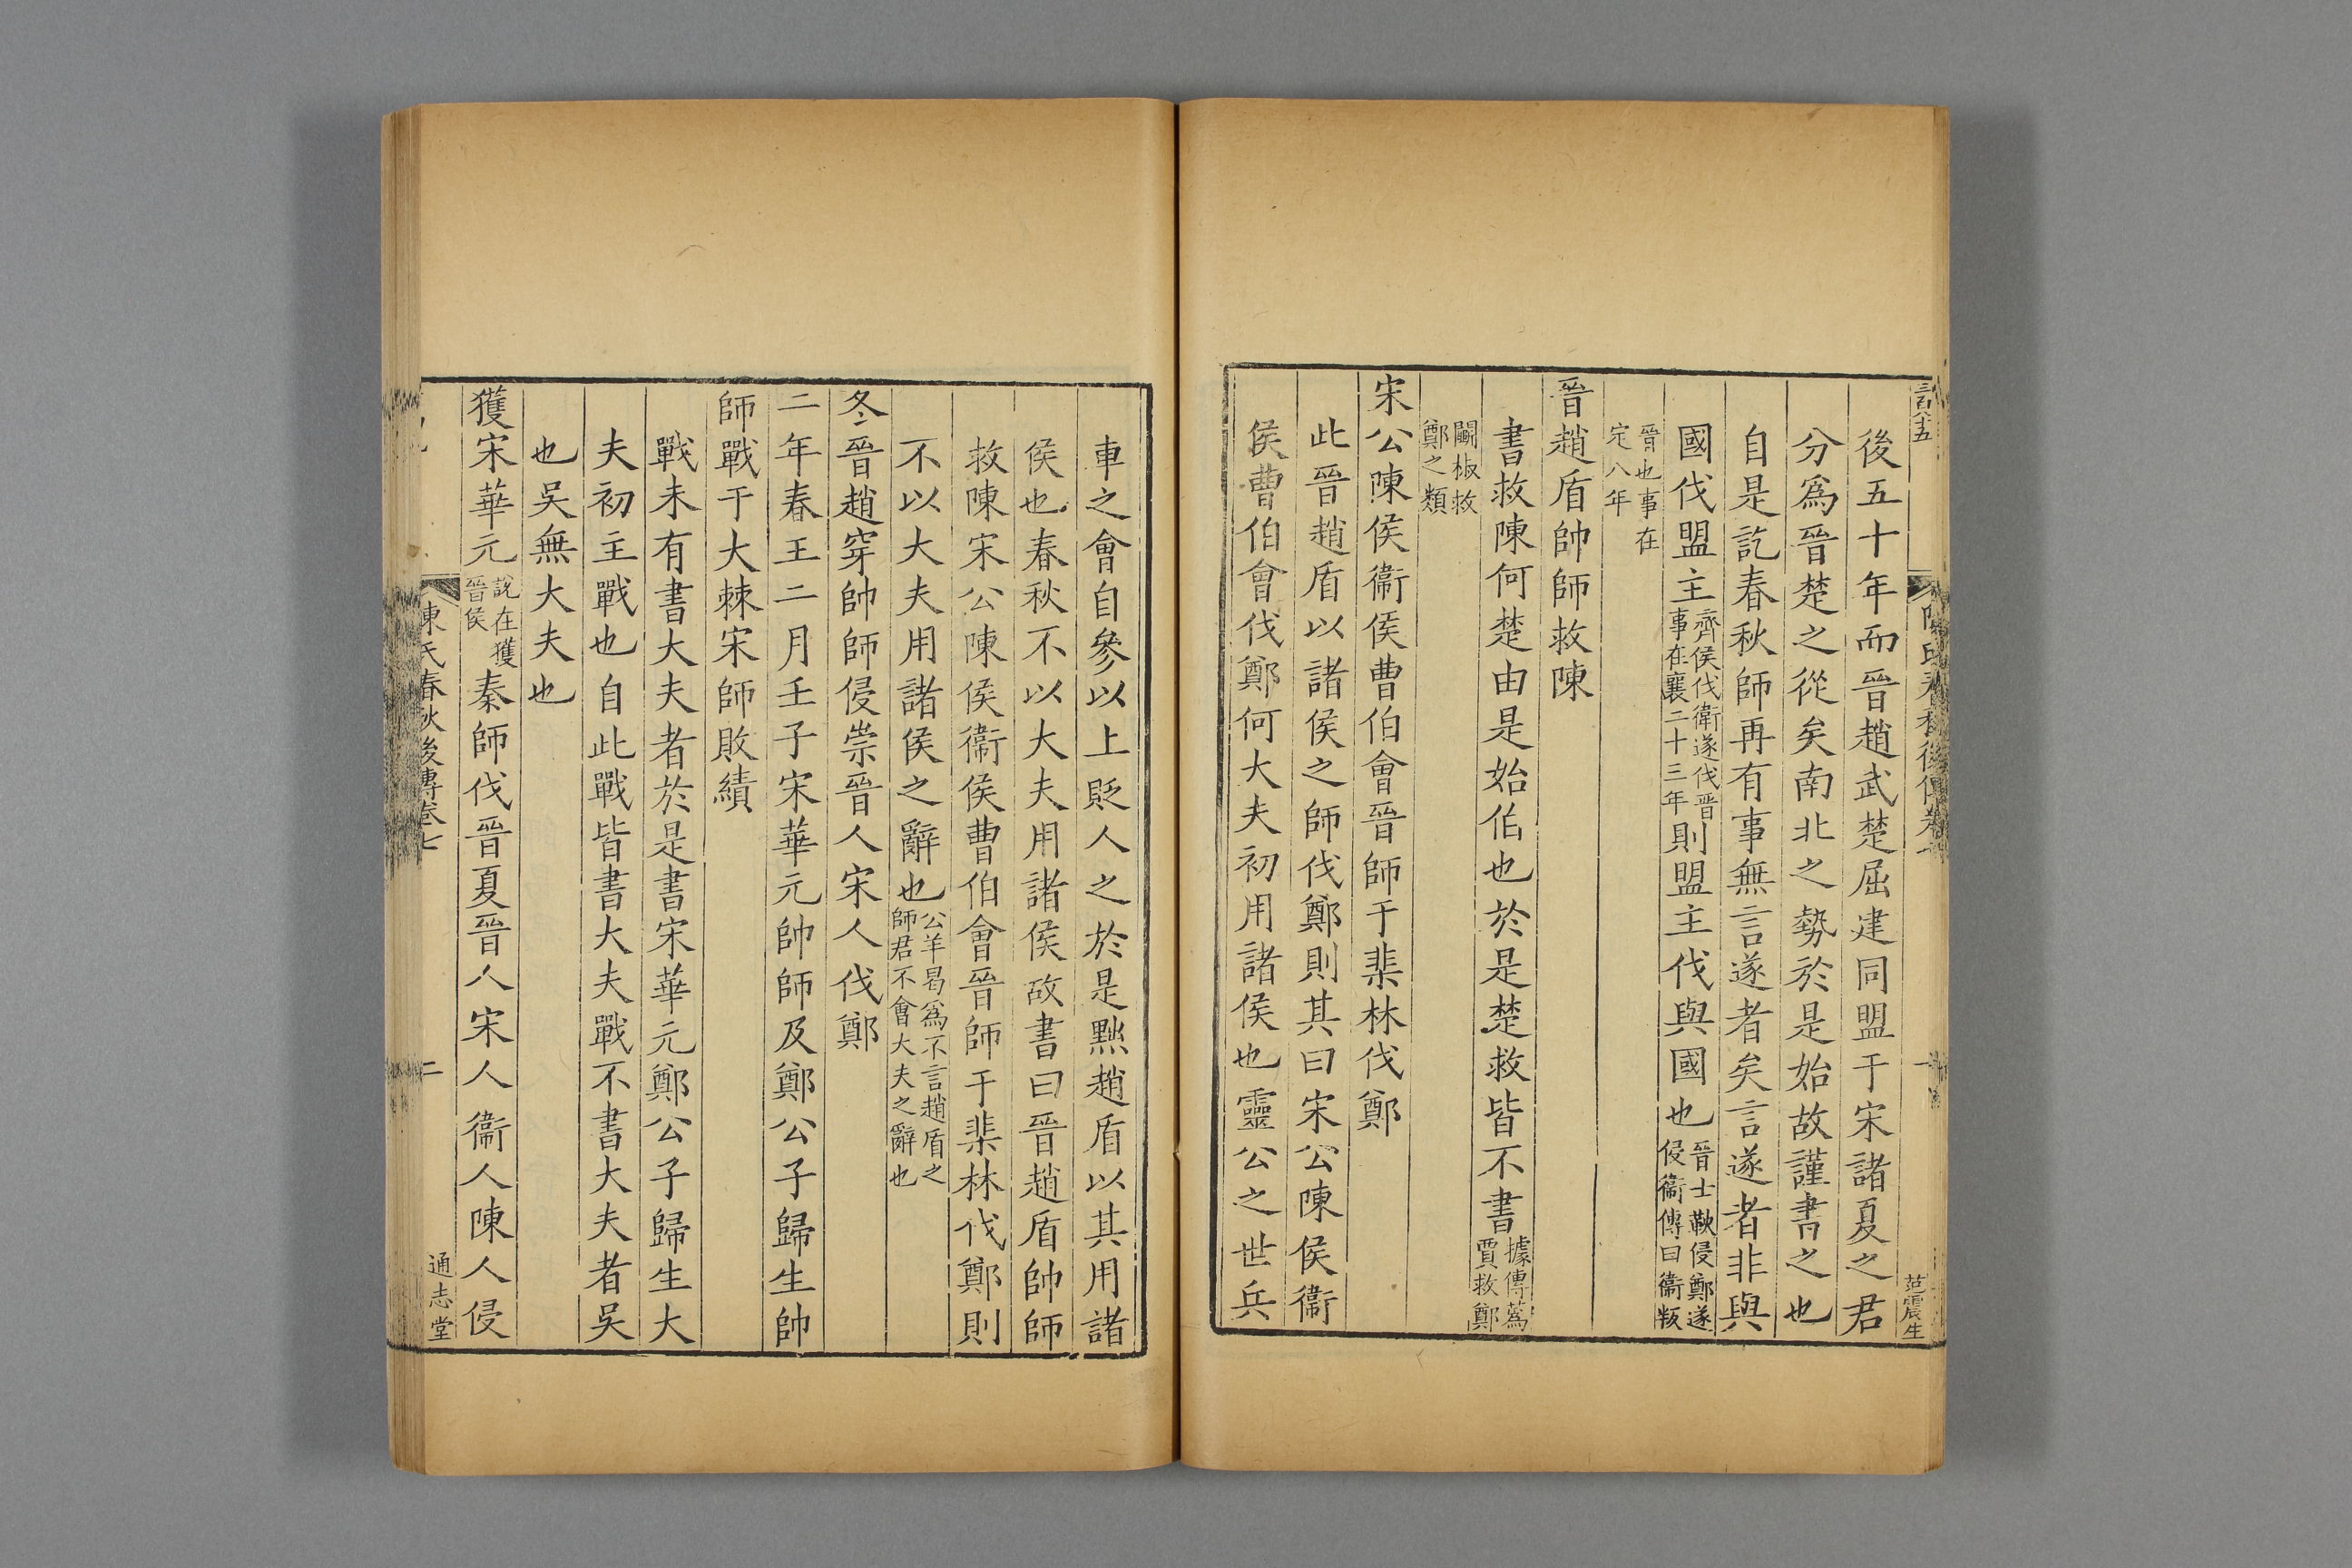 後五十年而晉趙武楚屈建同盟于宋諸夏之君
分爲晉楚之從矣南北之勢於是始故謹書之也
自是訖春秋師再有事無言遂者矣言遂者非與
國伐盟主齊侯伐衛遂伐晉事在襄二十三年則盟主伐與國也晉士鞅侵鄭遂侵衞傳曰衞叛
晉也事在定八年
晉趙盾帥師救陳
書救陳何楚由是始伯也於是楚救皆不書據傳蒍賈救鄭
鬬椒救鄭之類
宋公陳侯衞侯曹伯會晉師于棐林伐鄭
此晉趙盾以諸侯之師伐鄭則其曰宋公陳侯衞
侯曹伯會伐鄭何大夫初用諸侯也靈公之世兵
范震生
車之會自參以上貶人之於是黜趙盾以其用諸
侯也春秋不以大夫用諸侯故書曰晉趙盾帥師
救陳宋公陳侯衞侯曹伯會晉師于棐林伐鄭則
不以大夫用諸侯之辭也公羊曷爲不言趙盾之師君不會大夫之辭也
冬晉趙穿帥師侵崇晉人宋人伐鄭
二年春王二月壬子宋華元帥師及鄭公子歸生帥
師戰于大棘宋師敗績
戰未有書大夫者於是書宋華元鄭公子歸生大
夫初主戰也自此戰皆書大夫戰不書大夫者吳
也吳無大夫也
獲宋華元說在獲晉侯秦師伐晉夏晉人宋人衞人陳人侵
陳氏春秋後傳卷七
二
通志堂